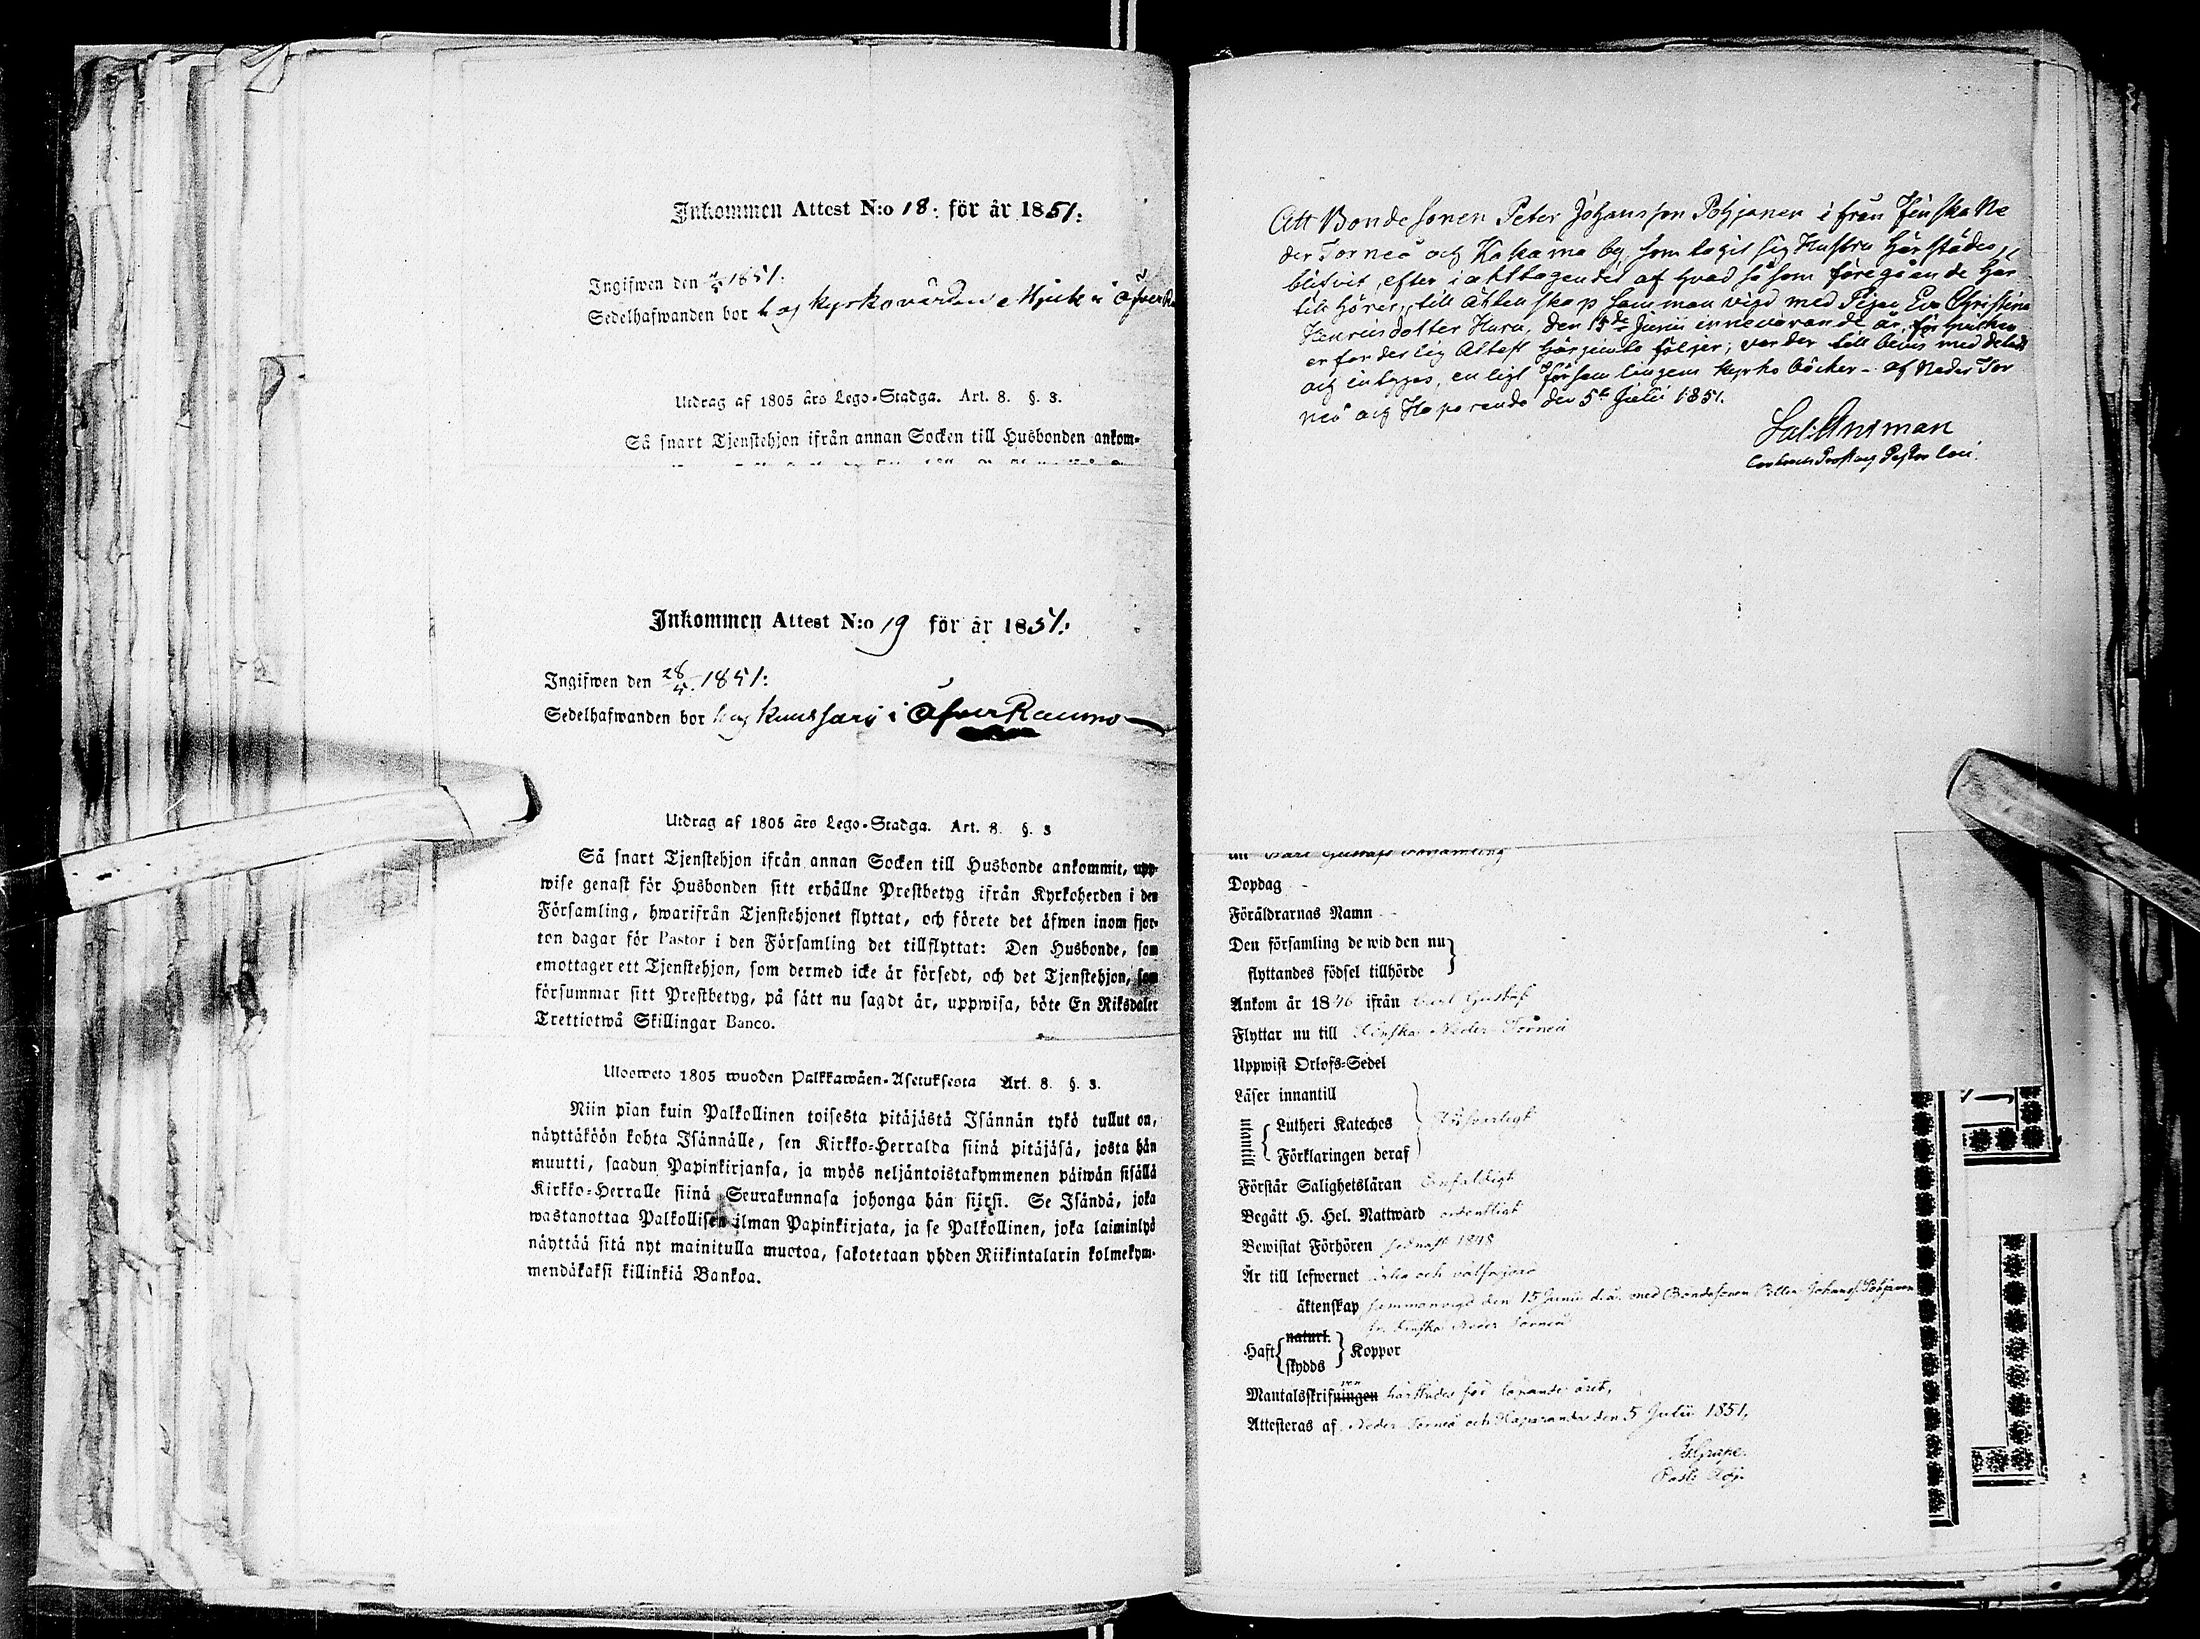 Inkommen Attest N:o 18: för år 1851:
Ingifwen den 1851:
Sedelhafwanden bor hos kyrkovärden i Öfver
Utdrag af 1805 års Lego-Stadga. Art. 8. §. 3.
Så snart Tjenstehjon ifrån annan Socken till Husbonden ankom-
Inkommen Attest N:o 19 för år 1851:
Ingifwen den 28/5. 1851:
Sedelhafwanden bor hos i Öfver Raumo
Utdrag af 1805 års Lego-Stadga. Art. 8. §. 3
Så snart Tjenstehjon ifrån annan Socken till Husbonde ankommit, upp-
wise genast för Husbonden sitt erhållne Prestbetyg ifrån Kyrkoherden i den
Församling, hwarifrån Tjenstehjonet flyttat, och förete det äfwen inom fjor-
ton dagar för Pastor i den Församling det tillflyttat: Den Husbonde, som
emottager ett Tjenstehjon, som dermed icke är försedt, och det Tjenstehjon, som
försummar sitt Prestbetyg, på sätt nu sagdt är, uppwisa, böte En Riksdaler
Trettiotwå Skillingar Banco.
Ulosweto 1805 wuoden Palkkawäen-Asetuksesta Art. 8. §. 3.
Niin pian kuin Palkollinen toisesta pitäjästä Isännän tykö tullut on,
näyttäköön kohta Isännälle, sen Kirkko-Herralda siinä pitäjäsä, josta hän
muutti, saadun Papinkirjansa, ja myös neljäntoistakymmenen päiwän sisällä
Kirkko-Herralle siinä Seurakunnasa johonga hän siirsi. Se Isändä, joka
wastanottaa Palkollisen ilman Papinkirjata, ja se Palkollinen, joka laiminlyö
näyttää sitä nyt mainitulla muotoa, sakotetaan yhden Riikintalarin kolmekym-
mendäkaksi killinkiä Bankoa.
Att Bondesonen Peter Johansson Pohjanen ifrån Finska Ne
der Torneå och Kakama by, som tagit sig Hustru härstädes,
blifvit, efter iakttagandet af hvad såsom föregående här
till hörer, till Äktenskap samman vigd med Pigan Eva Christina
Henricsdotter Hura, den 15de Junii innevarande år, för hvilken
erforderlig Attest härjemte följer; varder till bevis meddelat
och intyges, enligt församlingens kyrkoböcker - af Neder Tor
neå och Haparanda den 5te Julii 1851.
Contracts Prost och Pastor
Dopdag -
Föräldrarnas Namn -
Den församling de wid den nu
flyttandes födsel tillhörde
Ankom år 1846 ifrån Carl Gustaf
Flyttar nu till Finska Neder Torneå
Uppwist Orlofs-Sedel
Läser innantill
utantill
Lutheri Kateches
Förklaringen deraf
Förstår Salighetsläran Enfaldigt
Begått H. Hel. Nattward ordentligt
Bewistat Förhören sednast 1848
Är till lefwernet och välfrejdad
äktenskap sammanvigd den 15 Junii d.å. med Bondesonen Petter Johanss. Pohjanen
fr. Finska Neder Torneå
Haft
naturl.
skydds
Koppor
Mantalsskrifningen härstädes för löpande året,
Attesteras af Neder Torneå och Haparanda den 5 Julii 1851.
Grape
Past: Adj.